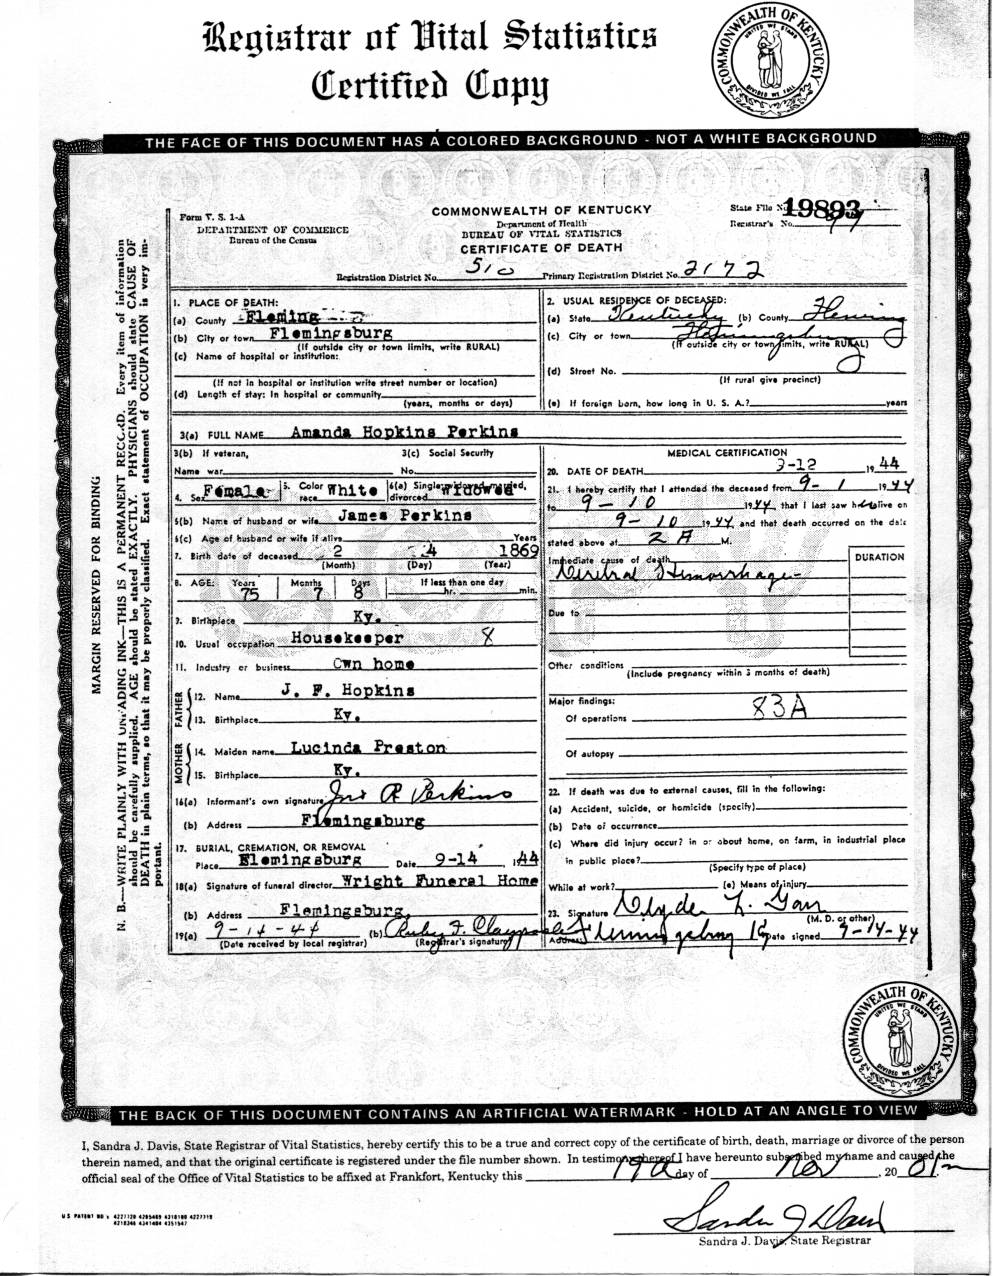 Registrar of Vital Statistics
Certified Copy
COMMONWEALTH OF KENTUCKY
UNITED WE STAND
DIVIDED WE FALL
THE FACE OF THIS DOCUMENT HAS A COLORED BACKGROUND - NOT A WHITE BACKGROUND
Form V. S. 1-A
DEPARTMENT OF COMMERCE
Bureau of the Census
COMMONWEALTH OF KENTUCKY
Department of Health
BUREAU OF VITAL STATISTICS
CERTIFICATE OF DEATH
State File No. 19893
Registrar's No.
Registration District No. 510 Primary Registration District No. 2172
MARGIN RESERVED FOR BINDING
N. B.—WRITE PLAINLY WITH UNFADING INK—THIS IS A PERMANENT RECORD. Every item of information
should be carefully supplied. AGE should be stated EXACTLY. PHYSICIANS should state CAUSE OF
DEATH in plain terms, so that it may be properly classified. Exact statement of OCCUPATION is very im-
portant.
1. PLACE OF DEATH:
(a) County Fleming
(b) City or town Flemingsburg
(If outside city or town limits, write RURAL)
(c) Name of hospital or institution:
(If not in hospital or institution write street number or location)
(d) Length of stay: In hospital or community
(years, months or days)
2. USUAL RESIDENCE OF DECEASED:
(a) State Kentucky (b) County Fleming
(c) City or town Flemingsburg
(If outside city or town limits, write RURAL)
(d) Street No.
(If rural give precinct)
(e) If foreign born, how long in U. S. A.? years
3(a) FULL NAME Amanda Hopkins Perkins
3(b) If veteran, 3(c) Social Security
Name war No.
4. Sex Female 5. Color race White 6(a) Single, widowed, married, divorced Widowed
6(b) Name of husband or wife James Perkins
6(c) Age of husband or wife if alive Years
7. Birth date of deceased 2 4 1869
(Month) (Day) (Year)
8. AGE: Years Months Days If less than one day
75 7 8 hr. min.
9. Birthplace Ky.
10. Usual occupation Housekeeper 8
11. Industry or business Own home
FATHER
12. Name J. F. Hopkins
13. Birthplace Ky.
MOTHER
14. Maiden name Lucinda Preston
15. Birthplace Ky.
16(a) Informant's own signature Jno R Perkins
(b) Address Flemingsburg
17. BURIAL, CREMATION, OR REMOVAL
Place Flemingsburg Date 9-14, 1944
18(a) Signature of funeral director Wright Funeral Home
(b) Address Flemingsburg,
19(a) 9-14-44 (b) Ruby F. Claypoole
(Date received by local registrar) (Registrar's signature)
MEDICAL CERTIFICATION
20. DATE OF DEATH 9-12 1944
21. I hereby certify that I attended the deceased from 9-1 1944
to 9-10 1944, that I last saw her alive on
9-10 1944 and that death occurred on the date
stated above at 2 A M.
Immediate cause of death DURATION
Cerebral Hemorrhage
Due to
Other conditions
(Include pregnancy within 3 months of death)
Major findings: 83A
Of operations
Of autopsy
22. If death was due to external causes, fill in the following:
(a) Accident, suicide, or homicide (specify)
(b) Date of occurrence
(c) Where did injury occur? in or about home, on farm, in industrial place
in public place?
(Specify type of place)
While at work? (e) Means of injury
23. Signature Clyde L. Garr
(M. D. or other)
Address Flemingsburg Ky Date signed 9-14-44
COMMONWEALTH OF KENTUCKY
UNITED WE STAND
DIVIDED WE FALL
THE BACK OF THIS DOCUMENT CONTAINS AN ARTIFICIAL WATERMARK - HOLD AT AN ANGLE TO VIEW
I, Sandra J. Davis, State Registrar of Vital Statistics, hereby certify this to be a true and correct copy of the certificate of birth, death, marriage or divorce of the person
therein named, and that the original certificate is registered under the file number shown. In testimony thereof I have hereunto subscribed my name and caused the
official seal of the Office of Vital Statistics to be affixed at Frankfort, Kentucky this 19th day of Nov, 20 01.
U S PATENT NO's 4227720 4295489 4310180 4227719
4210346 4341404 4351547
Sandra J Davis
Sandra J. Davis, State Registrar